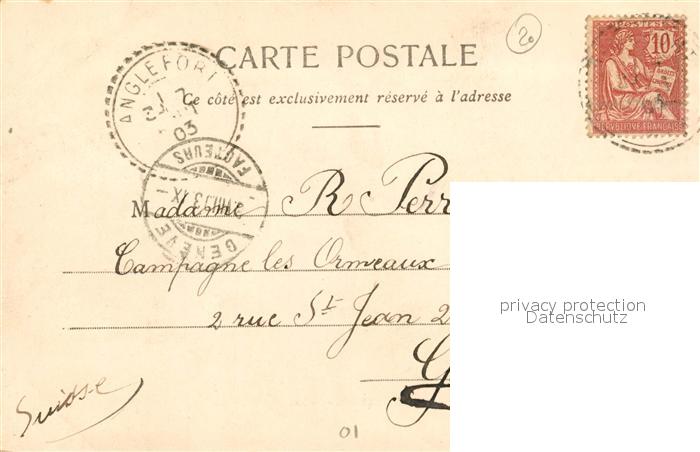 20
CARTE POSTALE
POSTES
10
Ce côté est exclusivement réservé à l'adresse
RÉPUBLIQUE FRANÇAISE
ANGLEFORT
03
FACTEURS
GENÈVE
Madame R Perr
Campagne les Ormeaux
2 rue St Jean 2
G
Suisse
01
privacy protection
Datenschutz